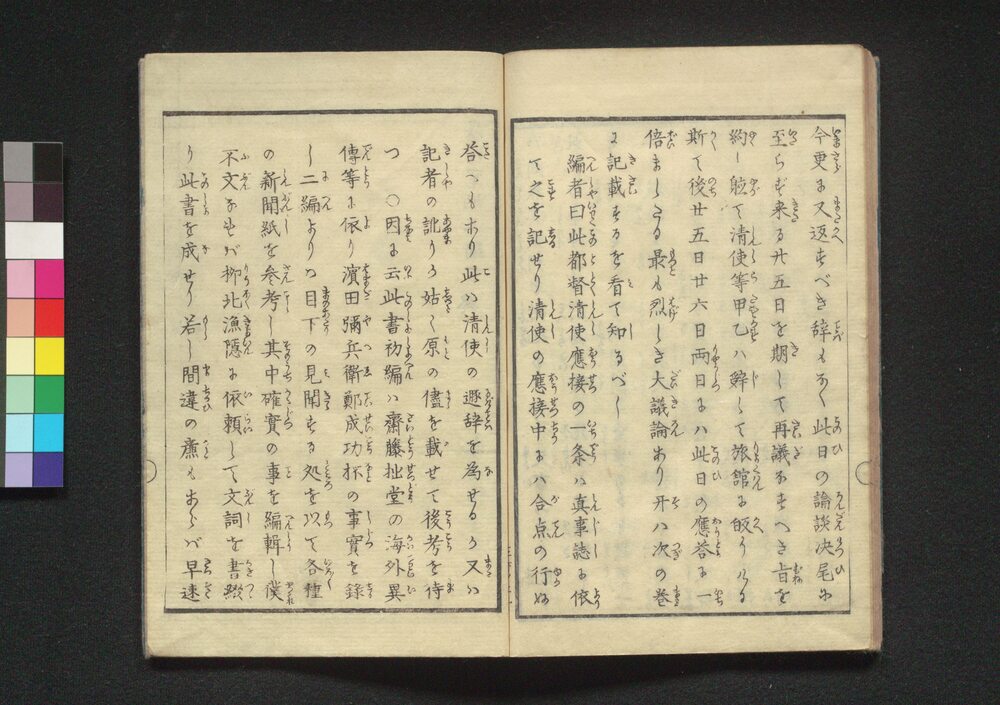 今更に又返すべき辞もなく此日の論談決尾に
至らず来る廿五日を期して再議なすへき旨を
約し畢て清使等甲乙ハ辞して旅館に皈りける
斯て後廿五日廿六日両日にハ此日の應答に一
倍ましたる最も烈しき大議論あり开ハ次の巻
に記載するを看て知るべし
編者曰此都督清使應接の一条ハ真事誌に依
て之を記せり清使の應接中にハ合点の行ぬ
答へもあり此ハ清使の遁辞を為せるか又ハ
記者の訛りか姑く原の儘を載せて後考を待
つ ○因に云此書初編ハ齋藤拙堂の海外異
傳等に依り濱田彌兵衛鄭成功杯の事實を録
し二編よりハ目下の見聞する処を以て各種
の新聞紙を参考し其中確實の事を編輯し僕
不文なれバ柳北漁隠に依頼して文詞を書綴
り此書を成せり若し間違の廉もあらバ早速